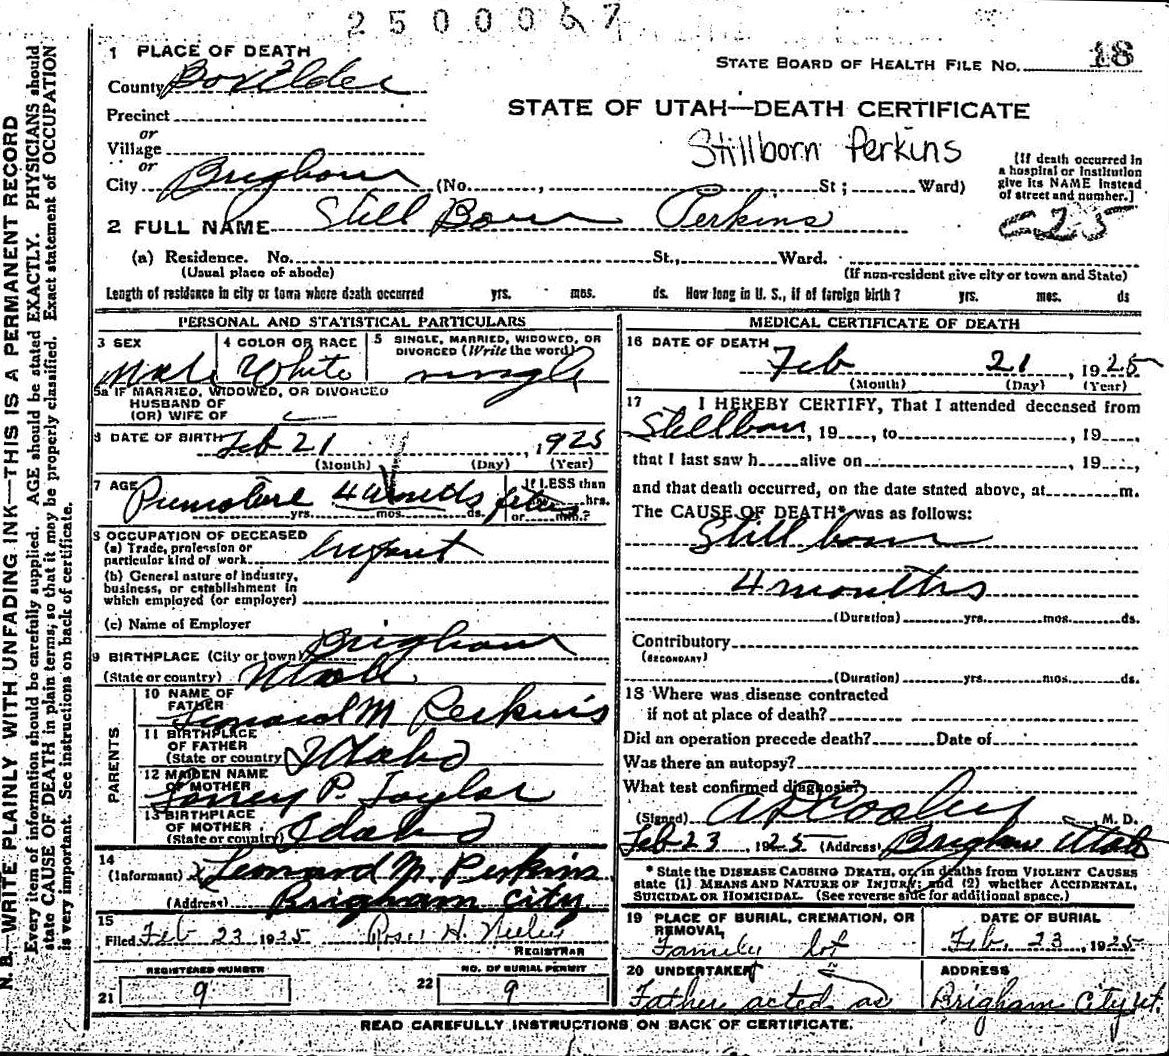 2500067
1 PLACE OF DEATH
STATE BOARD OF HEALTH FILE NO. 18
County Box Elder
STATE OF UTAH—DEATH CERTIFICATE
Precinct
or
Village
Stillborn Perkins
or
City Brigham (No. , St; Ward)
[If death occurred in
a hospital or institution
give its NAME instead
of street and number.]
25
2 FULL NAME Still Born Perkins
(a) Residence. No. St., Ward.
(Usual place of abode) (If non-resident give city or town and State)
Length of residence in city or town where death occurred yrs. mos. ds. How long in U. S., if of foreign birth? yrs. mos. ds
PERSONAL AND STATISTICAL PARTICULARS
3 SEX
Male
4 COLOR OR RACE
White
5 SINGLE, MARRIED, WIDOWED, OR
DIVORCED (Write the word)
single
5a IF MARRIED, WIDOWED, OR DIVORCED
HUSBAND OF
(OR) WIFE OF
6 DATE OF BIRTH Feb 21, 1925
(Month) (Day) (Year)
7 AGE
If LESS than
4 months
yrs. mos. ds. hrs.
or min.?
8 OCCUPATION OF DECEASED
(a) Trade, profession or
particular kind of work infant
(b) General nature of industry,
business, or establishment in
which employed (or employer)
(c) Name of Employer
9 BIRTHPLACE (City or town) Brigham
(State or country) Utah
PARENTS
10 NAME OF
FATHER
Leonard M Perkins
11 BIRTHPLACE
OF FATHER
(State or country) Idaho
12 MAIDEN NAME
OF MOTHER
P. Taylor
13 BIRTHPLACE
OF MOTHER
(State or country) Idaho
14
(Informant) Leonard M. Perkins
(Address) Brigham City
15
Filed Feb 23 1925
REGISTRAR
REGISTERED NUMBER
21 9
NO. OF BURIAL PERMIT
22 9
MEDICAL CERTIFICATE OF DEATH
16 DATE OF DEATH
Feb 21, 1925
(Month) (Day) (Year)
17 I HEREBY CERTIFY, That I attended deceased from
Stillborn, 19 , to , 19 ,
that I last saw h alive on , 19 ,
and that death occurred, on the date stated above, at m.
The CAUSE OF DEATH* was as follows:
Still born
4 months
(Duration) yrs. mos. ds.
Contributory
(SECONDARY)
(Duration) yrs. mos. ds.
18 Where was disease contracted
if not at place of death?
Did an operation precede death? Date of
Was there an autopsy?
What test confirmed diagnosis?
(Signed) A D Cooley, M. D.
Feb 23, 1925 (Address) Brigham Utah
* State the DISEASE CAUSING DEATH, or, in deaths from VIOLENT CAUSES
state (1) MEANS AND NATURE OF INJURY; and (2) whether ACCIDENTAL,
SUICIDAL OR HOMICIDAL. (See reverse side for additional space.)
19 PLACE OF BURIAL, CREMATION, OR
REMOVAL
Family lot
DATE OF BURIAL
Feb. 23, 1925
20 UNDERTAKER
Father acted as
ADDRESS
Brigham City Ut.
READ CAREFULLY INSTRUCTIONS ON BACK OF CERTIFICATE.
N. B.—WRITE PLAINLY WITH UNFADING INK—THIS IS A PERMANENT RECORD
Every item of information should be carefully supplied. AGE should be stated EXACTLY. PHYSICIANS should
state CAUSE OF DEATH in plain terms, so that it may be properly classified. Exact statement of OCCUPATION
is very important. See instructions on back of certificate.